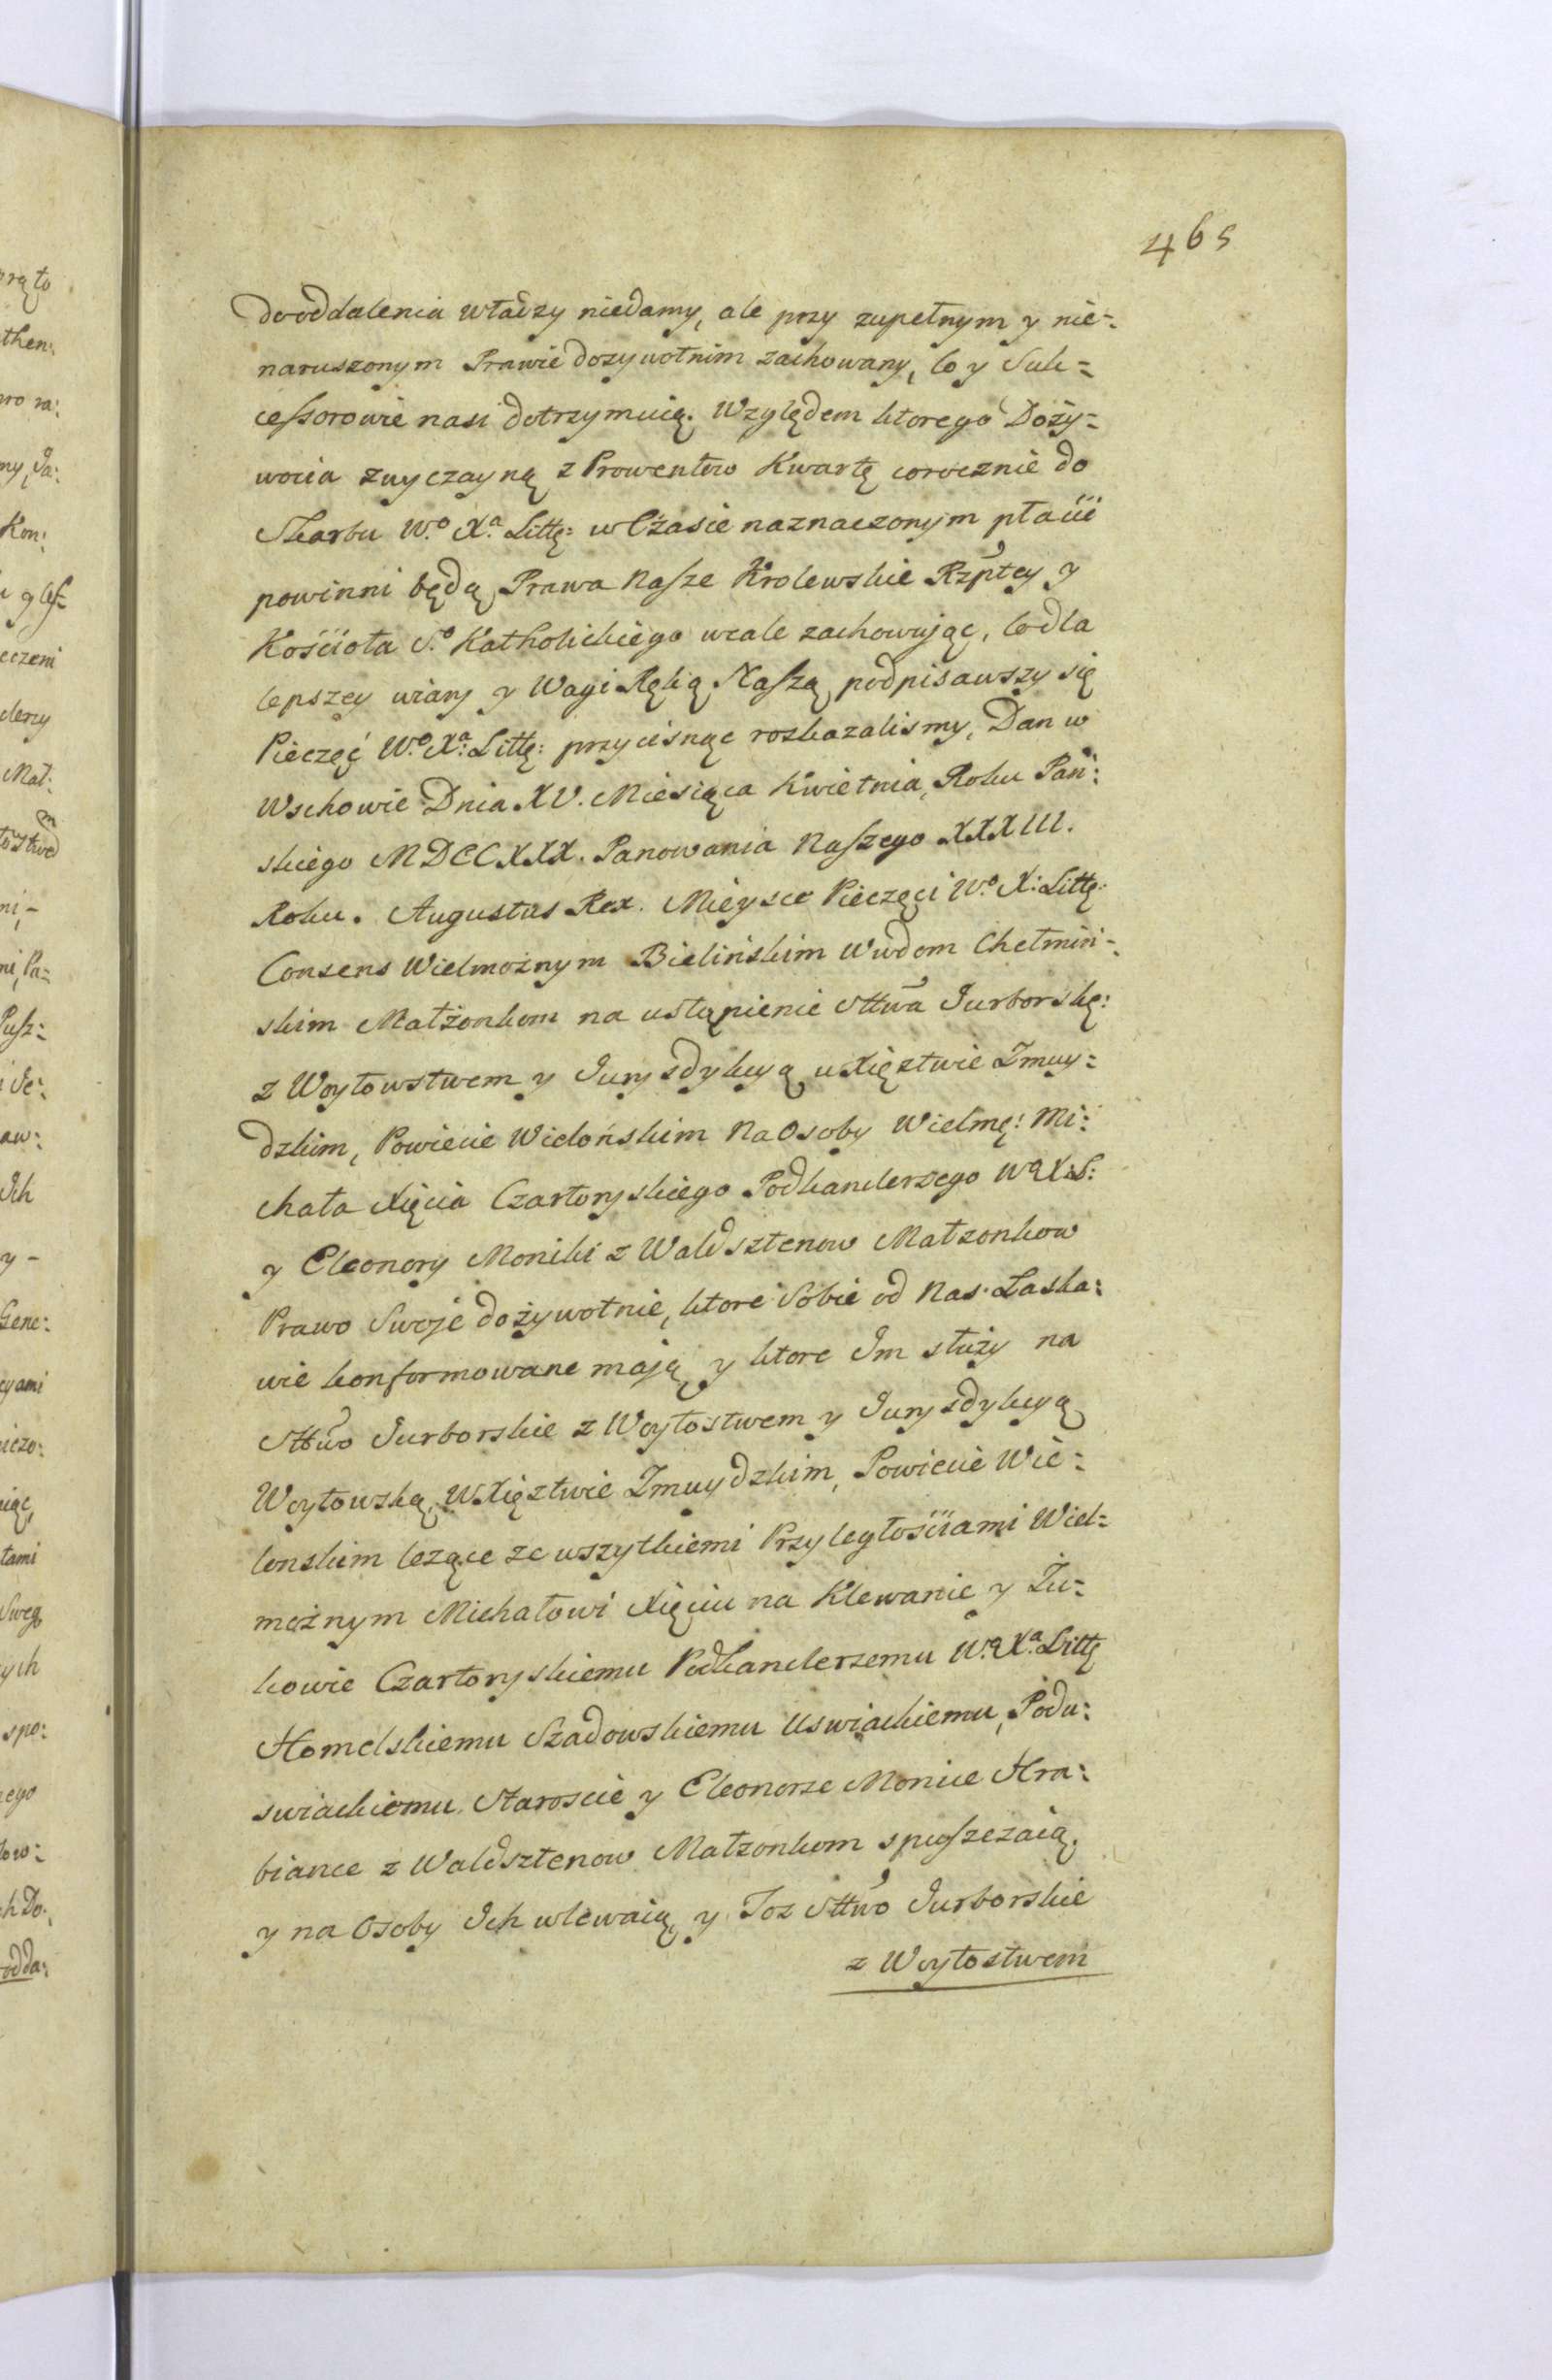 465
do oddalenia władzy niedamy, ale przy zupełnym y nie-
naruszonym Prawie dozywotnim zachowany, co y Suk=
cessorowie nasi dotrzymuią. Względem ktorego Doży=
wocia zwyczayną z Prowentow Kwartę corocznie do
Skarbu W.º X.ª Littę: w Czasie naznaczonym płacić
powinni będą, Prawa Nasze Krolewskie Rzptey y
Kościoła S.º Katholickiego wcale zachowując, co dla
lepszey wiary y Wagi Ręką Naszą podpisawszy się
Pieczęć W.º X.ª Littę: przycisnąc rozkazalismy, Dan w
Wschowie Dnia XV. Miesiąca Kwietnia, Roku Pań:
skiego MDCCXXX. Panowania Naszego XXXIII.
Roku. Augustus Rex. Mieysce Pieczęci W.º X: Littę:
Consens Wielmożnym Bielińskim Wwdom Chełmiń-
skim Małżonkom na ustąpienie Sttwa Jurborskę:
z Woytowstwem y Jurysdykcyą w Xięztwie Zmuy=
dzkim, Powiecie Wielońskim Na Osoby Wielmę: Mi:
chała Xięcia Czartoryskiego Podkanclerzego W.º X: L:
y Eleonory Moniki z Waldsztenow Małzonkow
Prawo Swoje dożywotnie, ktore Sobie od Nas Łaska:
wie konformowane mają, y ktore Im służy na
Sttwo Jurborskie z Woytostwem y Jurysdykcyą
Woytowską, w Xięztwie Zmuydzkim, Powiecie Wie=
lonskim lezące ze wszytkiemi Przyległościami Wiel=
możnym Michałowi Xięciu na Klewanie y Żu=
kowie Czartoryskiemu Podkanclerzemu W.º X.ª Littę
Homelskiemu Szadowskiemu Uswiackiemu, Podu:
swiackiemu, Staroscie y Eleonorze Monice Hra:
biance z Waldsztenow Małzonkom spuszczaią,
y na Osoby Ich wlewaią, y Toz Sttwo Jurborskie
z Woytostwem